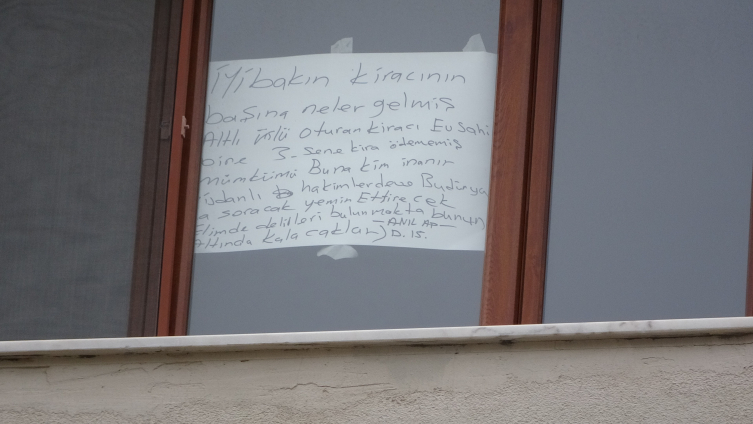 İyi bakın kiracının
başına neler gelmiş
Altlı üslü oturan kiracı Ev sahi
bine 3-sene kira ödememiş
mümkümü Buna kim inanır
hakimlerdeve Bu dünya
a soracak yemin Ettirecek
Elimde delilleri bulunmakta bunun
Altında kalacaklar) -ANIL AP-
D. 15.